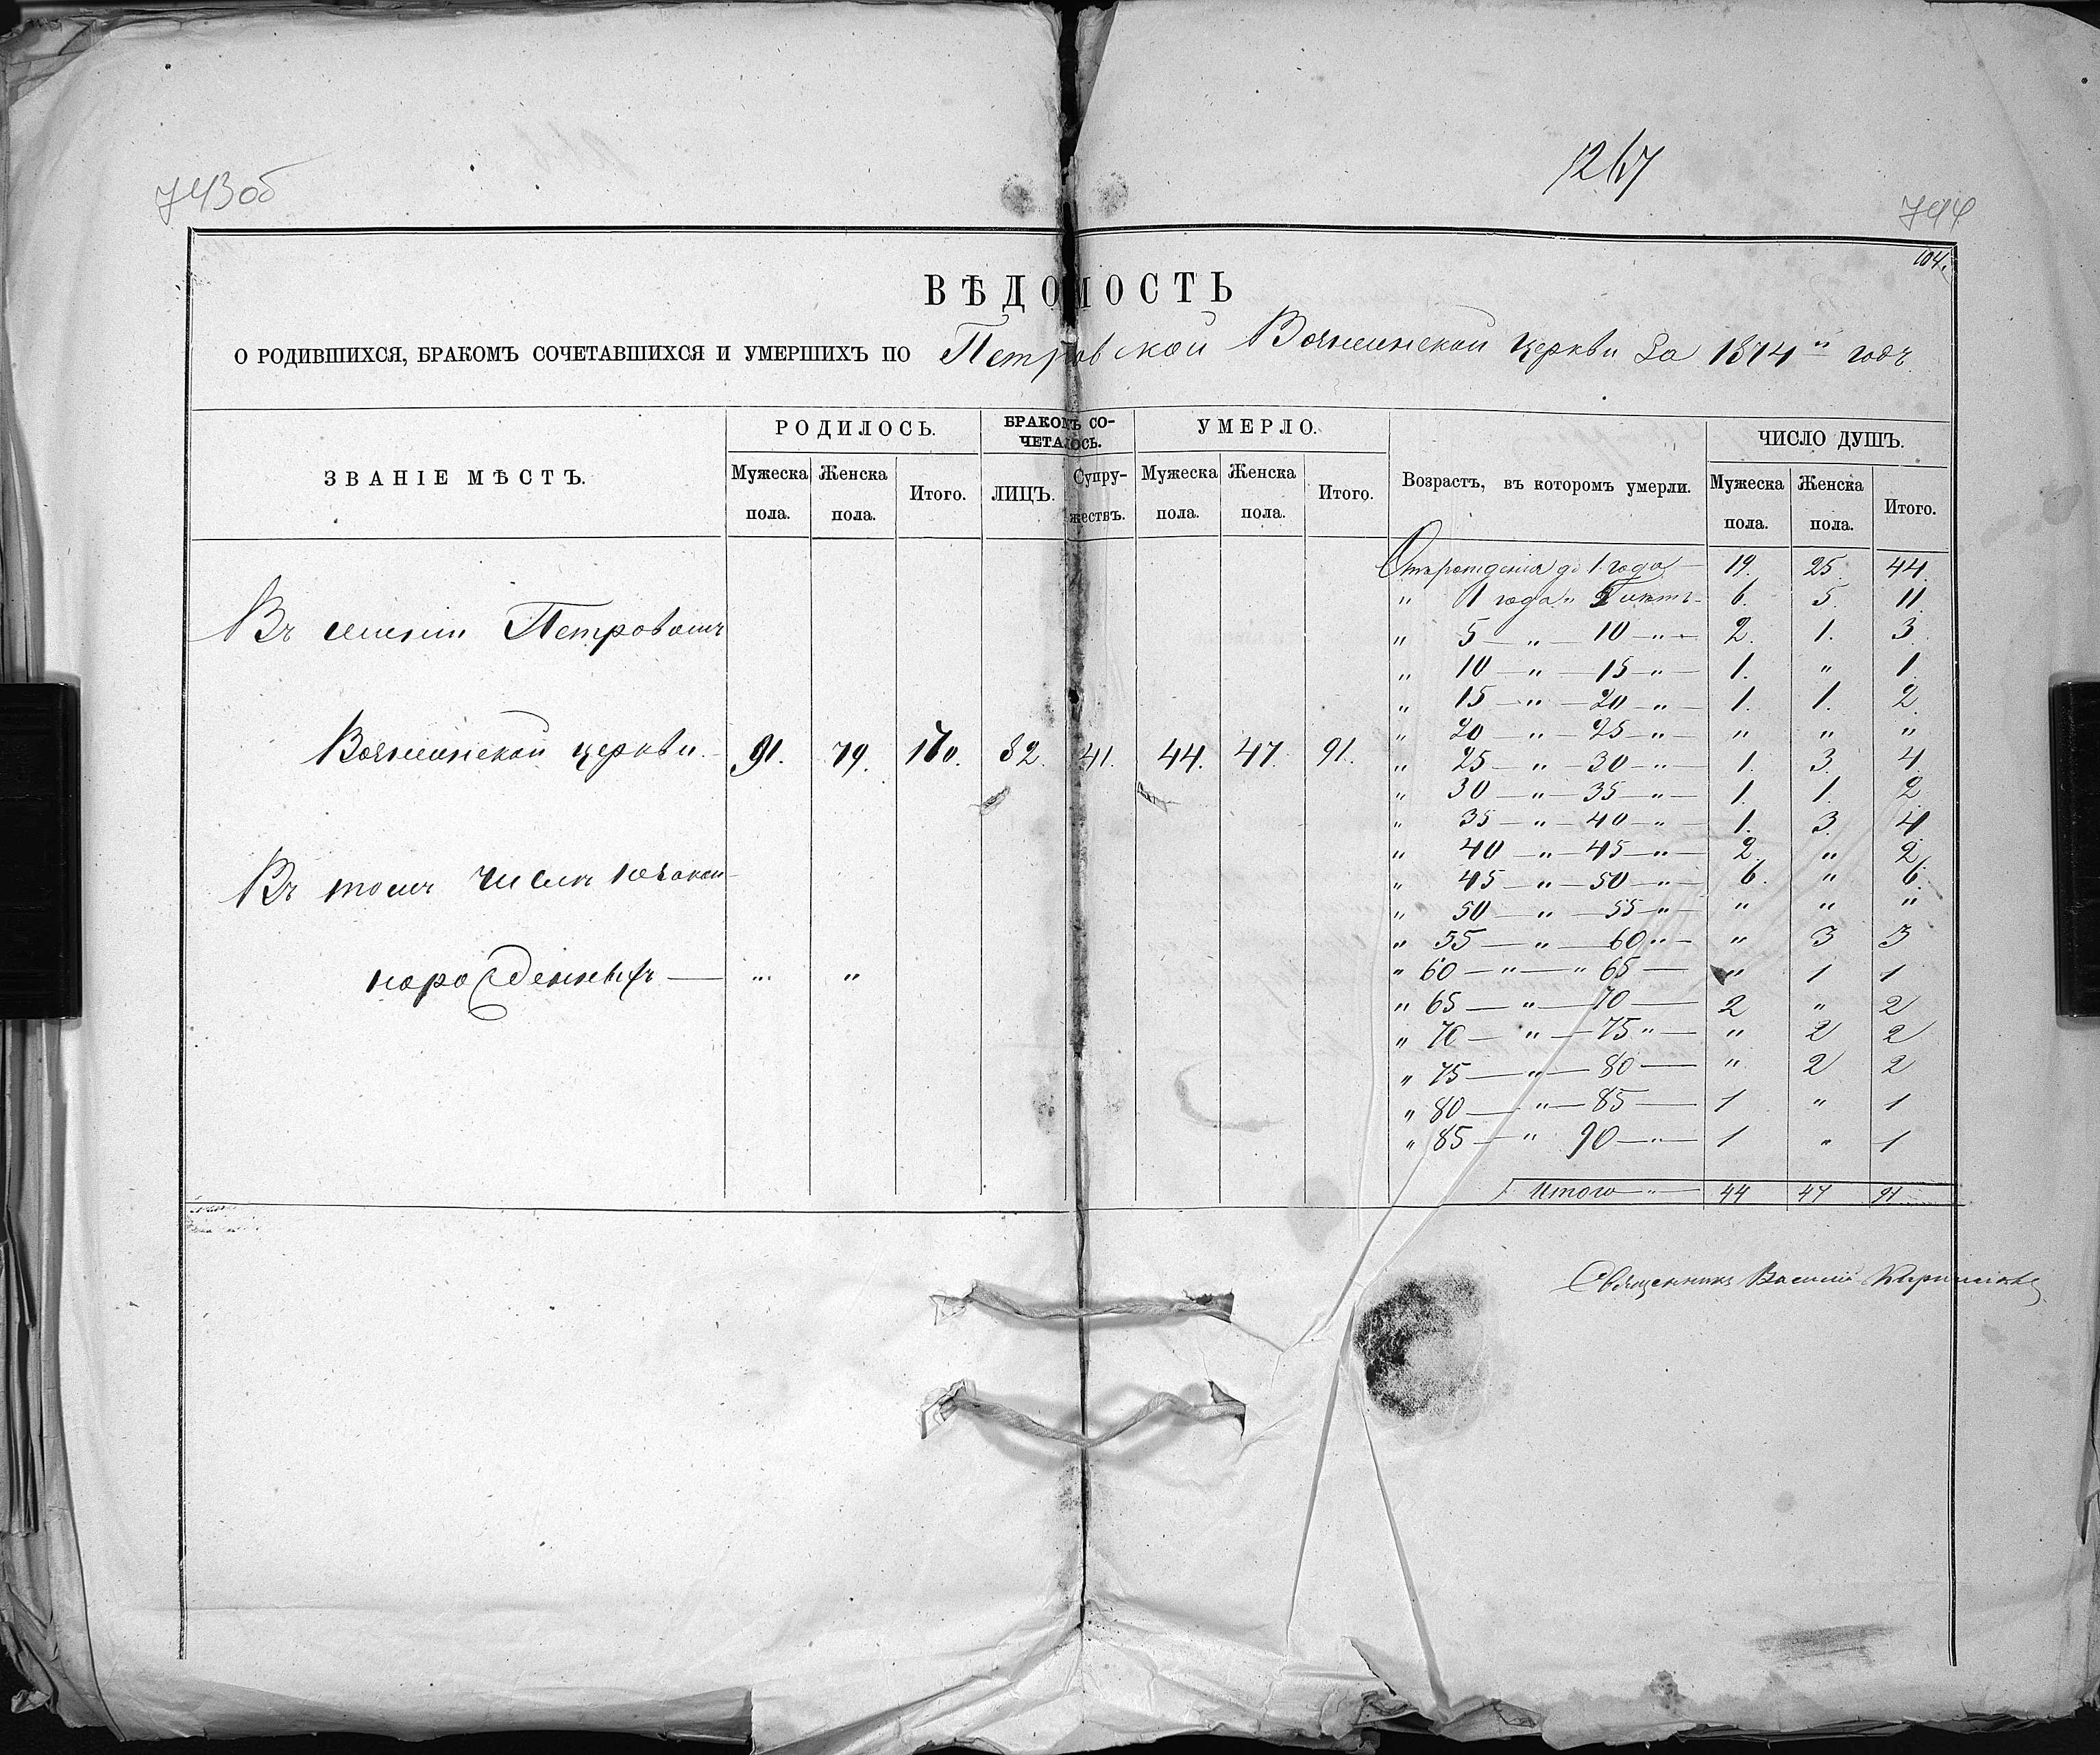 743об
1267
744
104.
ВѢДОМОСТЬ
О РОДИВШИХСЯ, БРАКОМЪ СОЧЕТАВШИХСЯ И УМЕРШИХЪ ПО Петровской церкви За 1874й годъ.
ЗВАНІЕ МѢСТЪ. РОДИЛОСЬ. БРАКОМЪ СОЧЕТАЛОСЬ. УМЕРЛО. Возрастъ, въ которомъ умерли. ЧИСЛО ДУШЪ.
Мужеска пола. Женска пола. Итого. ЛИЦЪ. Супружествъ. Мужеска пола. Женска пола. Итого. Мужеска пола. Женска пола. Итого.
Въ селеніи Петровомъ
церкви. 91. 79. 170. 82. 41. 44. 47. 91.
Въ томъ числѣ
— " "
Отъ рожденія до 1 года — 19. 25. 44.
" 1 года " 5 лѣтъ — 6. 5. 11.
" 5 — " — 10 — " — 2. 1. 3.
" 10 — " — 15 — " — 1. " 1.
" 15 — " — 20 — " — 1. 1. 2.
" 20 — " — 25 — " — " " "
" 25 — " — 30 — " — 1. 3. 4.
" 30 — " — 35 — " — 1. 1. 2.
" 35 — " — 40 — " — 1. 3. 4.
" 40 — " — 45 — " — 2. " 2.
" 45 — " — 50 — " — 6. " 6.
" 50 — " — 55 — " — " " "
" 55 — " — 60 " — " 3 3
" 60 — " — " 65 — " 1 1
" 65 — " — 70 — 2 " 2
" 70 — " — 75 " — " 2 2
" 75 — " — 80 — " 2 2
" 80 — " — 85 — 1 " 1
" 85 — " 90 — " — 1 " 1
Итого — " — 44 47 91
Священникъ Василій